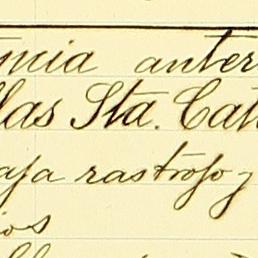 ncia anter
llas Sta. Cat
aja rastrojo y
ios